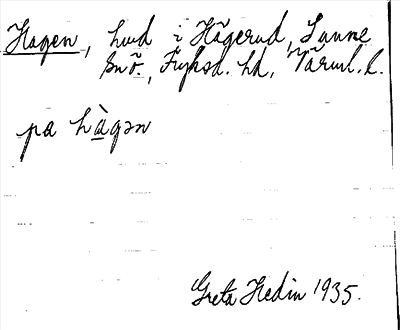 Hagen, hmd i Hågerud, Lunne
sn, Fryksd. hd, Värml. l.
på hàgən
Greta Hedin 1935.